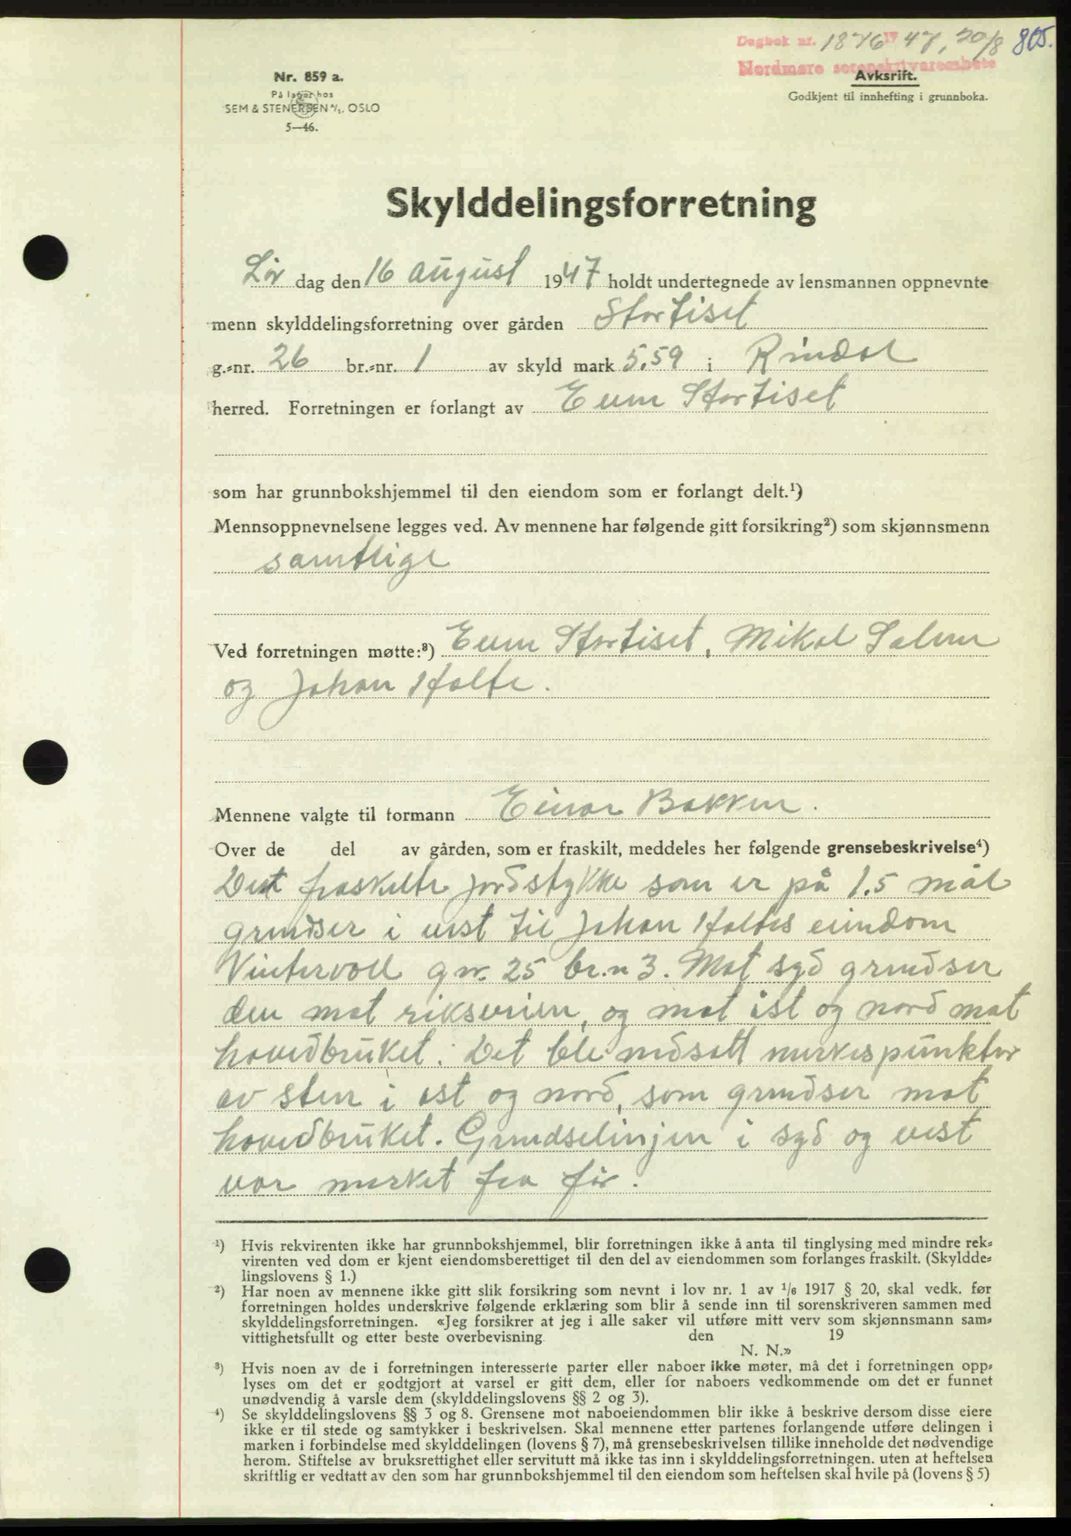 Dagbok nr. 1876 1947, 20/8 805.
Nordmøre sorenskrivarembete
Nr. 859 a.
På lager hos
SEM & STENERSEN A/S. OSLO
5—46.
Avskrift.
Godkjent til innhefting i grunnboka.
Skylddelingsforretning
Lør dag den 16 august 1947 holdt undertegnede av lensmannen oppnevnte
menn skylddelingsforretning over gården Stortiset
g.-nr. 26 br.-nr. 1 av skyld mark 5.59 i Rindal
herred. Forretningen er forlangt av Even Stortiset
som har grunnbokshjemmel til den eiendom som er forlangt delt.¹)
Mennsoppnevnelsene legges ved. Av mennene har følgende gitt forsikring²) som skjønnsmenn
samtlige
Ved forretningen møtte:³) Even Stortiset, Mikal
og Johan Holte.
Mennene valgte til formann Einar Bakken.
Over de del av gården, som er fraskilt, meddeles her følgende grensebeskrivelse⁴)
Det fraskilte jordstykke som er på 1.5 mål
grendser i vest til Johan Holtes eiendom
Vintervoll gnr. 25 br.n 3. Mot syd grendser
den mot riksveien, og mot øst og nord mot
hovedbruket. Det ble nedsatt merkespunkter
av sten i øst og nord, som grendser mot
hovedbruket. Grendselinjen i syd og vest
var merket fra før.
¹) Hvis rekvirenten ikke har grunnbokshjemmel, blir forretningen ikke å anta til tinglysing med mindre rek-
virenten ved dom er kjent eiendomsberettiget til den del av eiendommen som forlanges fraskilt. (Skyldde-
lingslovens § 1.)
²) Har noen av mennene ikke gitt slik forsikring som nevnt i lov nr. 1 av 1/6 1917 § 20, skal vedk. før
forretningen holdes underskrive følgende erklæring som blir å sende inn til sorenskriveren sammen med
skylddelingsforretningen. «Jeg forsikrer at jeg i alle saker vil utføre mitt verv som skjønnsmann sam-
vittighetsfullt og etter beste overbevisning den 19
N. N.»
³) Hvis noen av de i forretningen interesserte parter eller naboer ikke møter, må det i forretningen opp-
lyses om det er godtgjort at varsel er gitt dem, eller for naboers vedkommende om det er funnet
unødvendig å varsle dem (skylddelingslovens §§ 2 og 3).
⁴) Se skylddelingslovens §§ 3 og 8. Grensene mot naboeiendommen blir ikke å beskrive dersom disse eiere
ikke er til stede og samtykker i beskrivelsen. Skal mennene etter partenes forlangende utføre delingen i
marken i forbindelse med skylddelingen (lovens § 7), må grensebeskrivelsen tillike inneholde det nødvendige
herom. Stiftelse av bruksrettighet eller servitutt må ikke tas inn i skylddelingsforretningen. uten at heftelsen
skriftlig er vedtatt av den som har grunnbokshjemmel til den eiendom som heftelsen skal hvile på (lovens § 5)